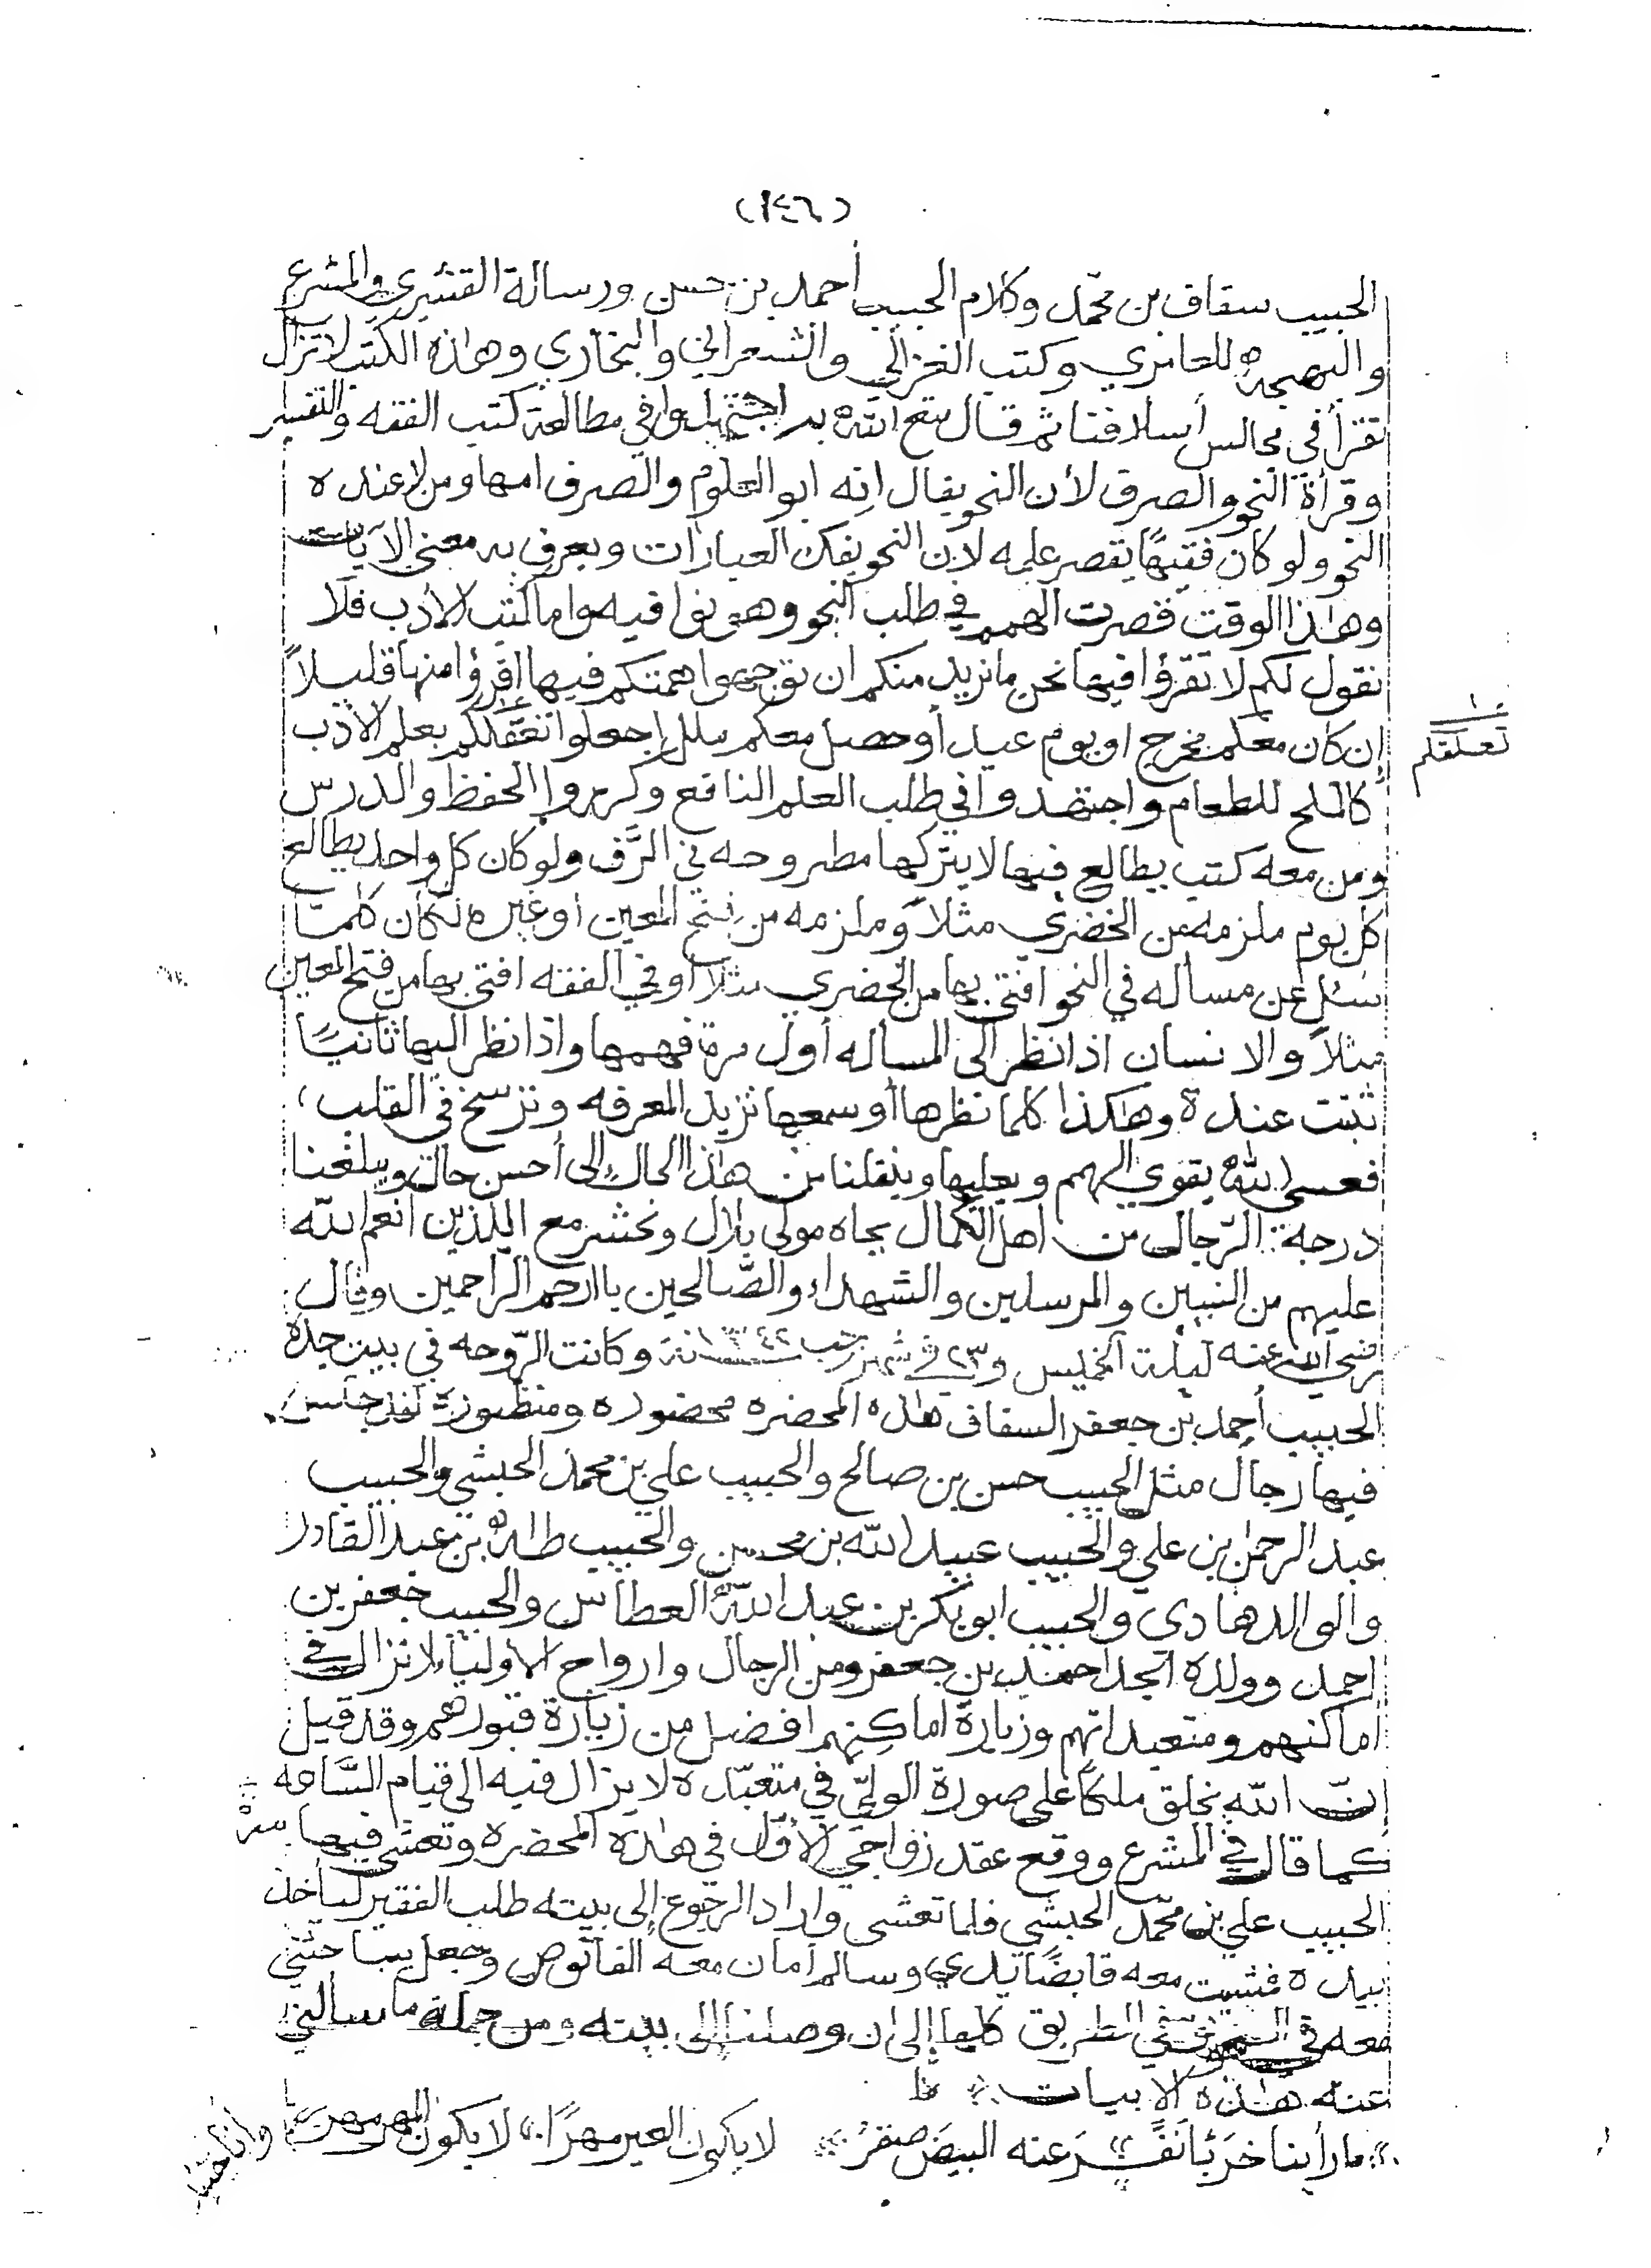 (١٤٦)
الحبيب سقاف بن محمّد وكلام الحبيب أحمد بن حسن ورسالة القشيري والمشرع
والبهجة للعامري وكتب الغزالي والشعراني والبخاري وهٰذه الكتب لاتزال
تقرأ في مجالس أسلافنا ثم قال متع الله به اجتهدوا في مطالعة كتب الفقه والتفسير
وقرأة النحو والصرف لأن النحو يقال انه ابو العلوم والصرف امها ومن لاعنده
النحو ولو كان فقيهًا يقصر علمه لأن النحو يفك العبارات ويعرف به معنى الآيات
وهٰذا الوقت قصرت الهمم في طلب النحو وهو نوا فيه واما كتب الأدب فلا
نقول لكم لا تقرؤا فيها نحن مانريد منكم ان توجهوا همتكم فيها اقرؤا منها قليلاً
إن كان معكم مخرج او يوم عيد أو حصل معكم ملل إجعلوا تعقلكم بعلم الأدب
تعلقكم
كالملح للطعام واجتهدوا في طلب العلم النافع وكرروا الحفظ والدرس
ومن معه كتب يطالع فيها لا يتركها مطروحه في الرَّف ولو كان كل واحد يطالع
كل يوم ملزمه من الخضري مثلاً وملزمه من فتح المعين أو غيره لكان كلما
سُئل عن مسأله في النحو افتى بها من الخضري مثلا أو في الفقه افتى بها من فتح المعين
مثلاً والانسان اذا نظر الى المسأله أول مرة فهمها واذا نظر اليها ثانيًا
ثبتت عنده وهٰكذا كلما نظرها أو سمعها تزيد المعرفه وترسخ في القلب،
فعسى الله يقوي الهمم ويعليها وينقلنا من هٰذا الحال إلى أحسن حال ويبلغنا
درجة الرّجال من اهل الكمال بجاه مولى بلال ونحشر مع اللذين انعم الله
عليهم من النبيين والمرسلين والشهداء والصَّالحين ياارحم الراحمين وقال
رضي الله عنه ليلة الخميس و٢٣ في شهر رجب ١٣٤٢سنة وكانت الرّوحه في بيت جده
الحبيب أحمد بن جعفر السقاف هٰذه المحضره محضوره ومنظوره لقد جلس
فيها رجال مثل الحبيب حسن بن صالح والحبيب علي بن محمد الحبشي والحبيب
عبد الرحمٰن بن علي والحبيب عبيد الله بن محسن والحبيب طٰه بن عبد القادر
والوالد هادي والحبيب ابوبكر بن عبد الله العطاس والحبيب جعفر بن
احمد وولده الجد احمد بن جعفر ومن الرجال وارواح الأولياء لاتزال في
اماكنهم ومتعبداتهم وزيارة اماكنهم افضل من زيارة قبورهم وقد قيل
إن الله يخلق ملكًا على صورة الوليّ في متعبّده لا يزال فيه الى قيام السَّاعه
كما قال في المشرع ووقع عقد زواجي الأول في هٰذه المحضره وتعشى فيها
الحبيب علي بن محمّد الحبشي فلما تعشى واراد الرجوع إلى بيته طلب الفقير ليأخذ
بيده فمشيت معه قابضًا بيدي وسالم أمان معه الفانوص وجعل يباحثني
معه في الطريق كلها إلى ان وصلنا إلى بيته ومن جملة ما سألني
عنه هٰذه الابيات
مارأينا خربًا نَفَّرَ عنه البيضَ صقرُ لا يكون العير مهرًا لا يكون المهر مهرُ